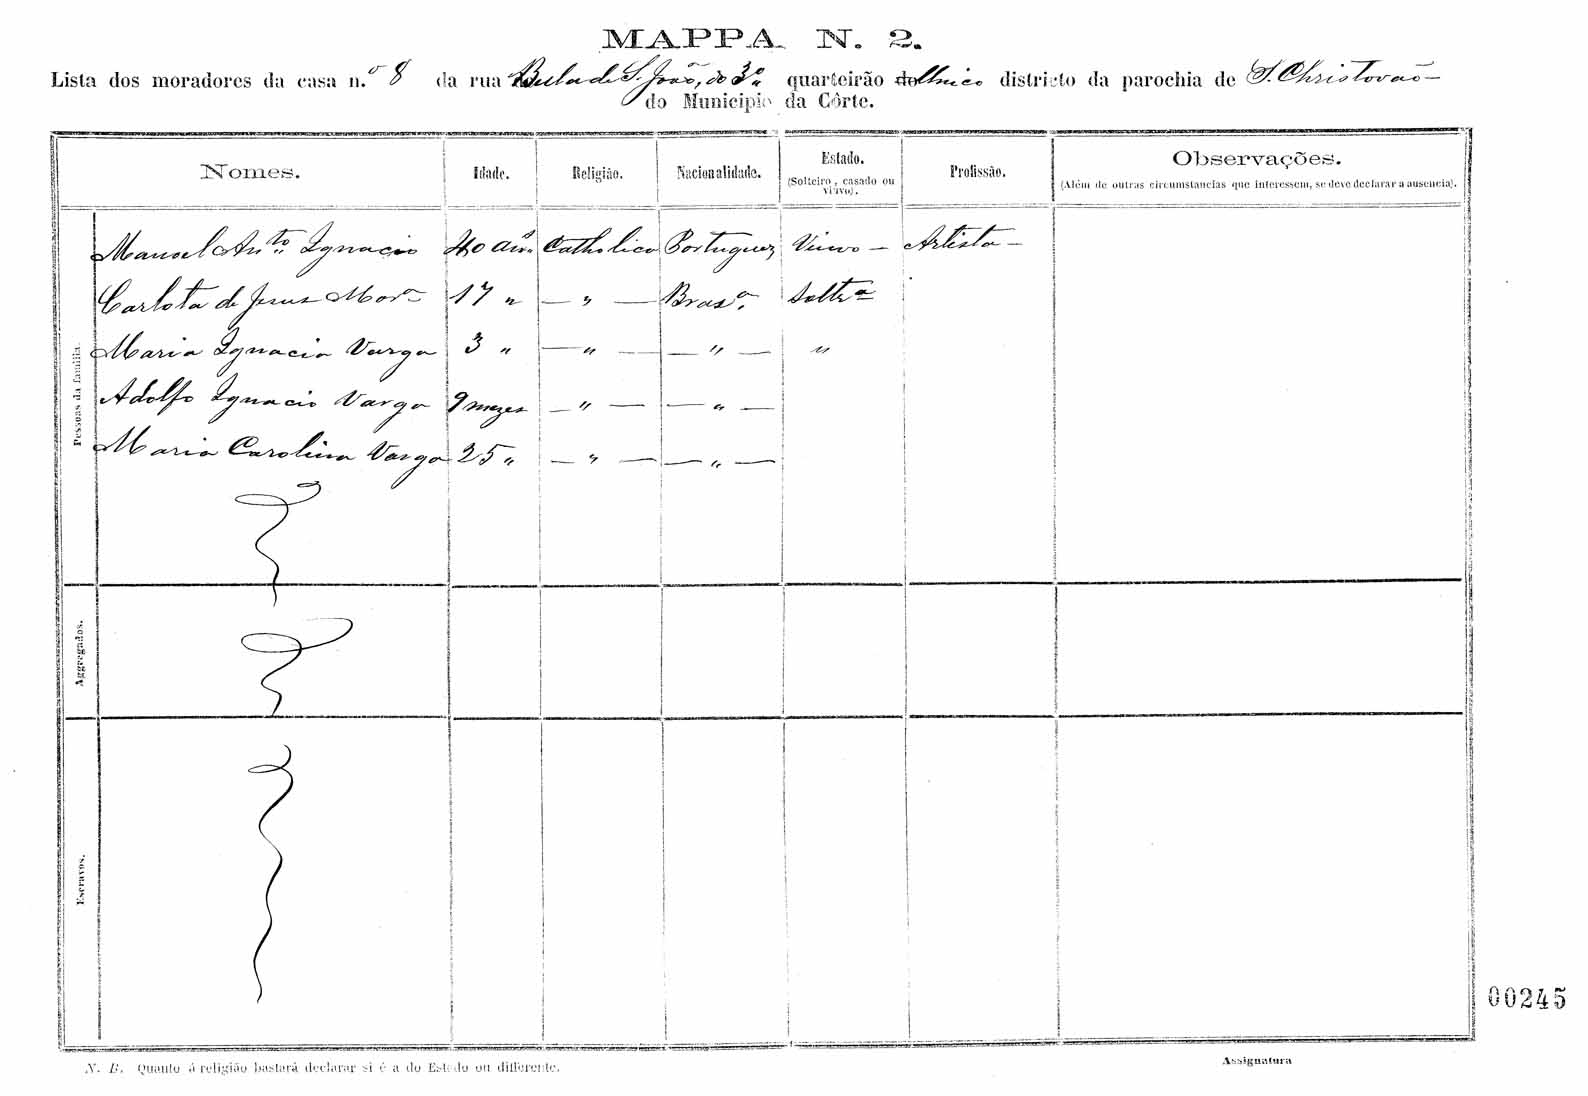 MAPPA N. 2.
Lista dos moradores da casa n.º 8 da rua de S. João, do 3º quarteirão do Unico districto da parochia de S. Christovão —
do Municipio da Côrte.
Nomes. Idade. Religião. Nacionalidade. Estado. (Solteiro, casado ou viuvo). Profissão. Observações. (Além de outras circumstancias que interessem, se deve declarar a ausencia).
Pessoas da familia.
Manoel Anto. Ignacio 40 ans. Catholico Portuguez Viuvo — Artista —
Carlota de Jesus Mor.a 17 " — " — Bras.a Soltra
Maria Ignacia Varga 3 " — " — — " — "
Adolfo Ignacio Varga 9 mezes — " — — " —
Maria Carolina Varga 25 " — " — — " —
Aggregados.
Escravos.
00245
N. B. Quanto á religião bastará declarar si é a do Estado ou differente.
Assignatura